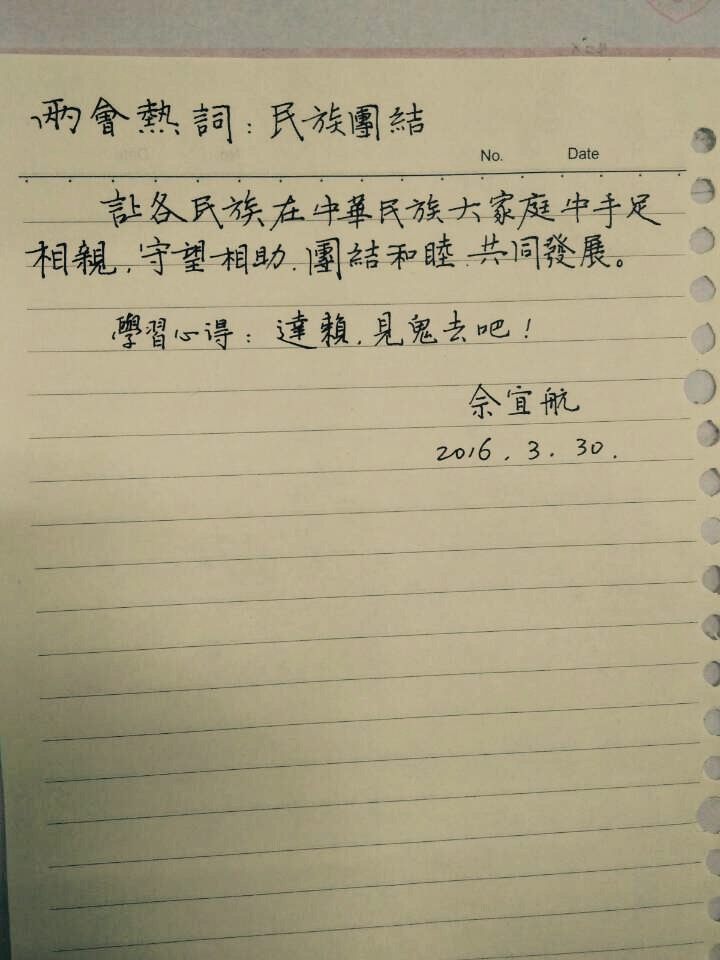 兩會熱詞：民族團結
No. Date
讓各民族在中華民族大家庭中手足
相親，守望相助，團結和睦，共同發展。
學習心得：達賴，見鬼去吧！
佘宜航
2016.3.30.